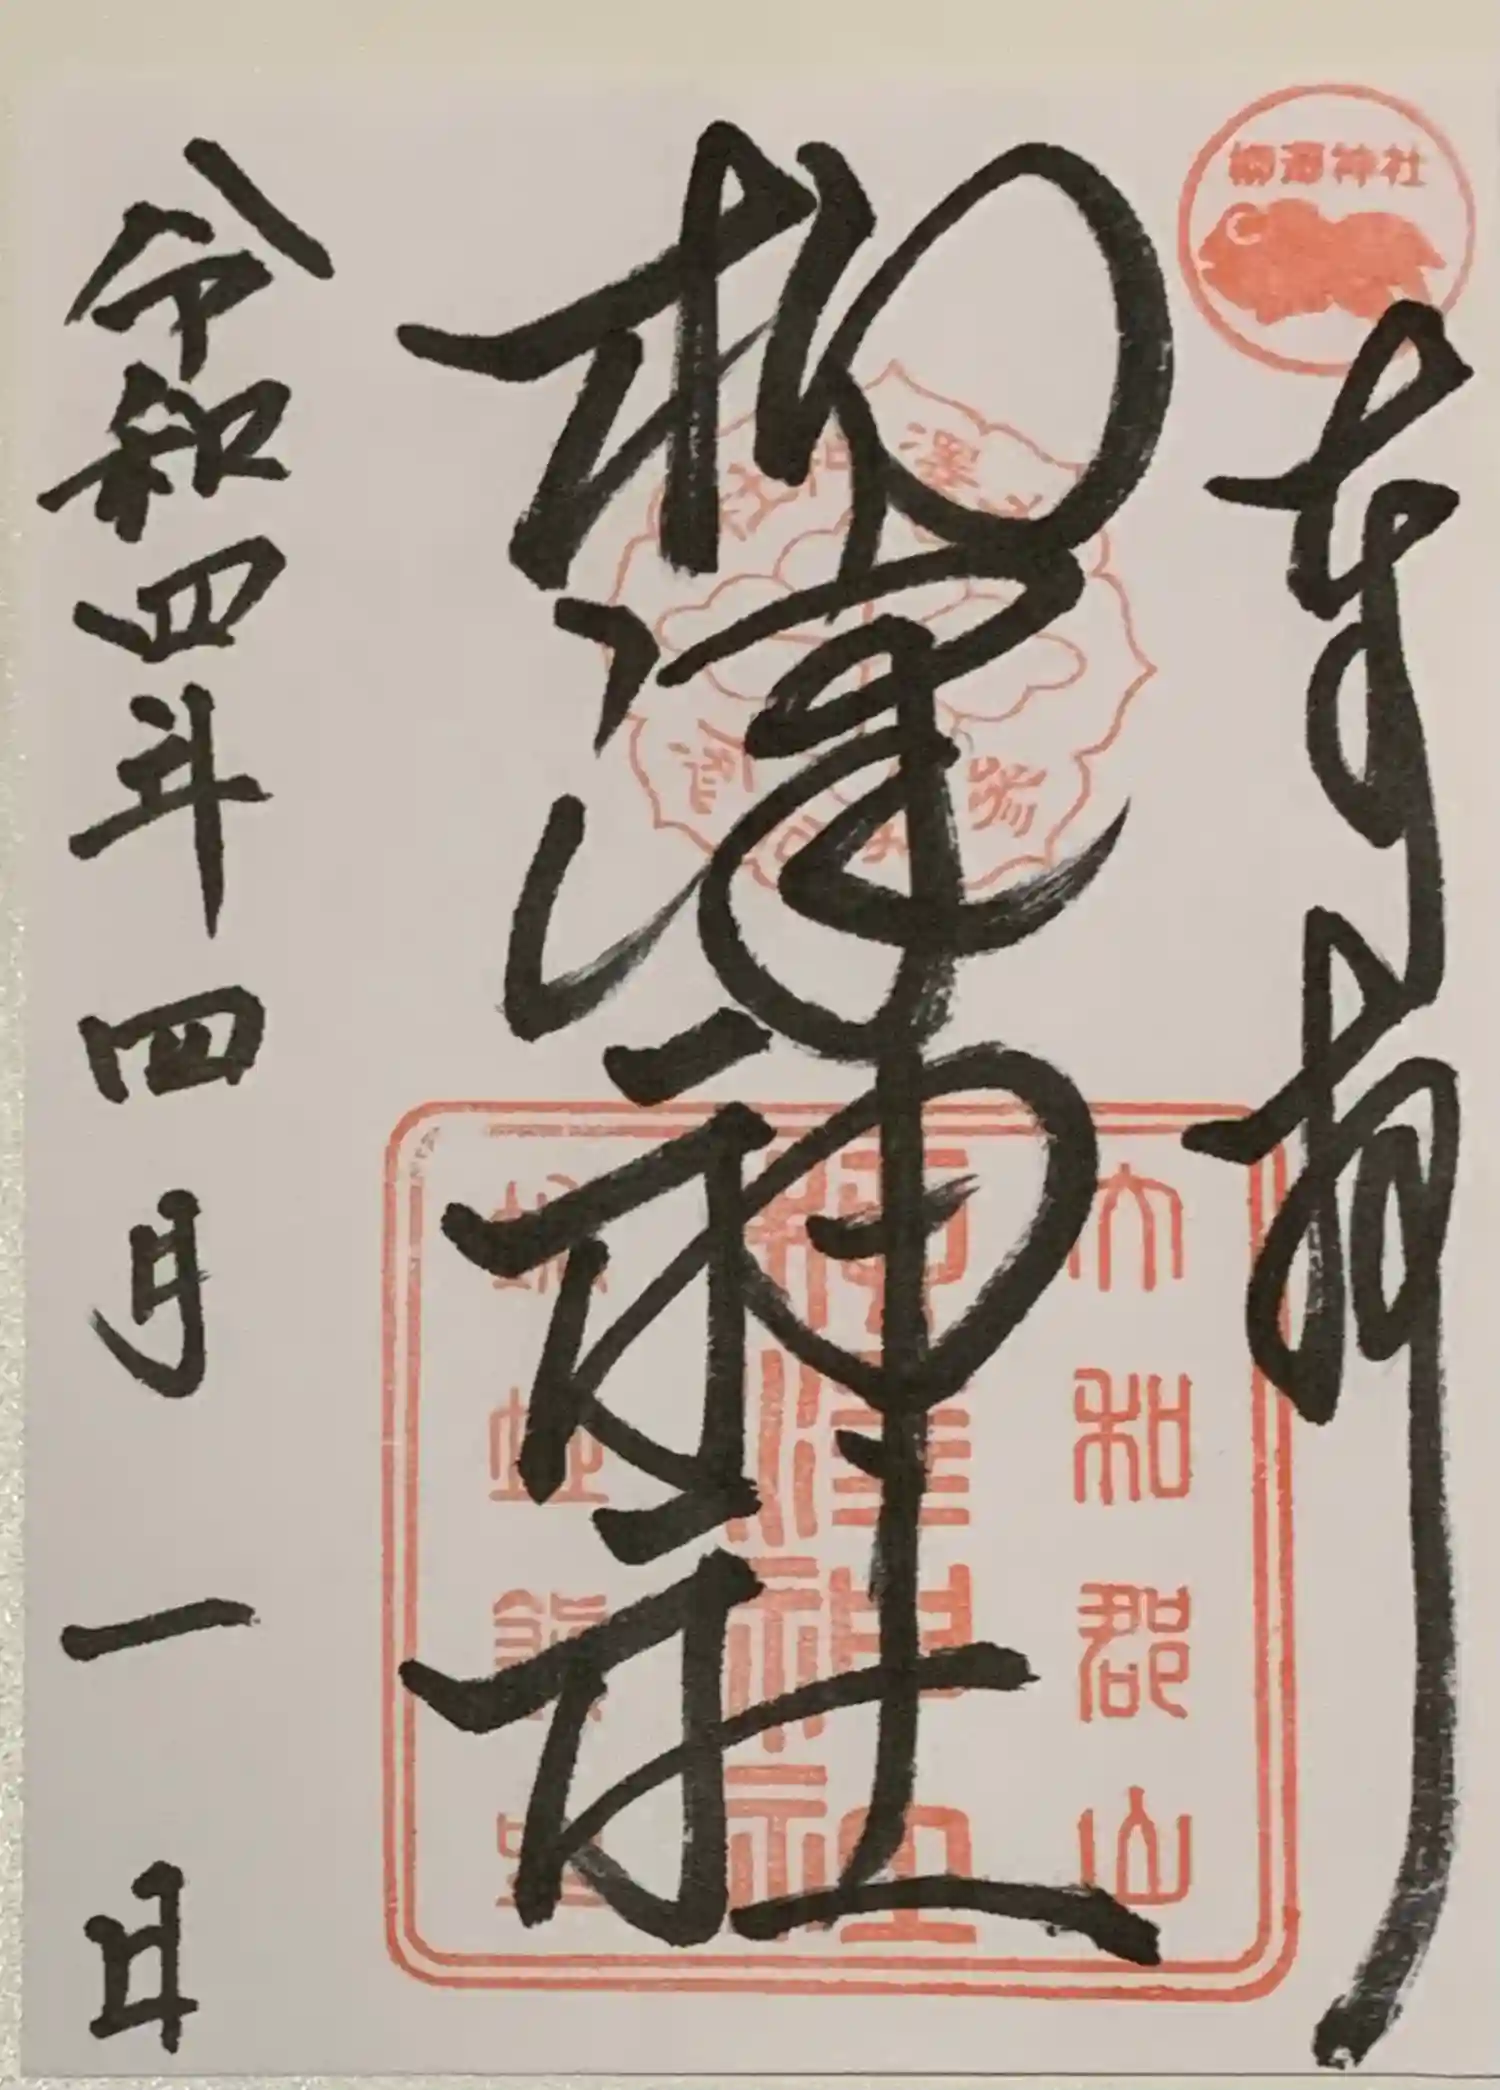 柳澤神社
奉拝
柳澤神社
大和郡山
柳澤神社
城址鎮皇
令和四年四月一日